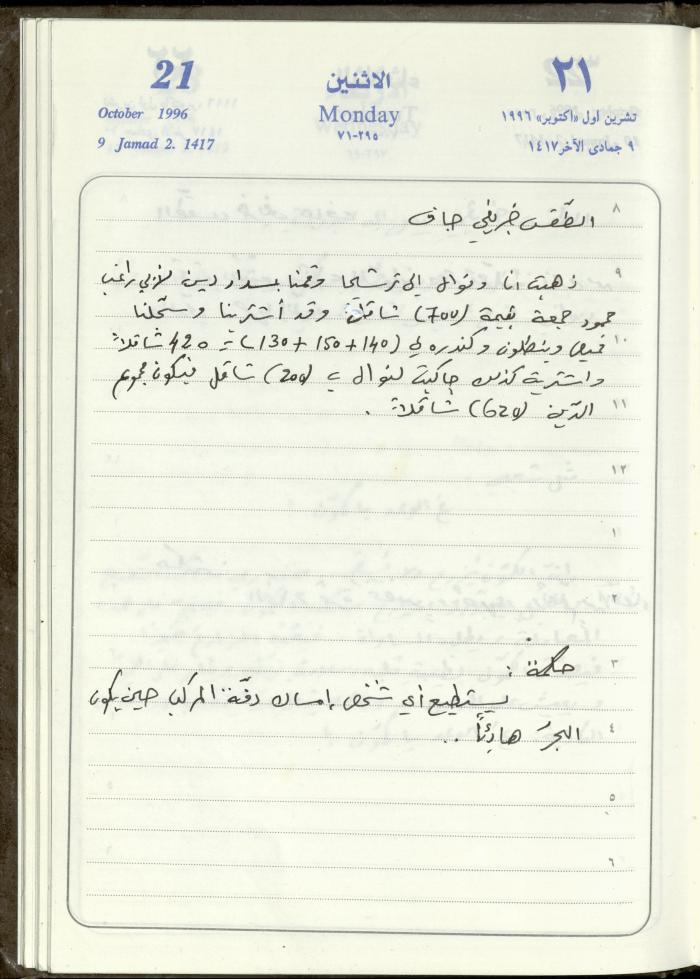 21 الاثنين ٢١
October 1996 Monday تشرين اول «اكتوبر» ١٩٩٦
9 Jamad 2. 1417 ٧١-٢٩٥ ٩ جمادى الآخر ١٤١٧
٨ الطقس خريفي جاف
٩ ذهبت انا ونوال الى ترشيحا وقمنا بسداد دين لأبي راغب
حمود جمعة بقيمة (700) شاقلاً وقد أشترينا وسجّلنا
١٠ قميص وبنطلون وكندره لي (140+150+130) = 420 شاقلاً
واشتريت كذلك جاكيت لنوال بـ (200) شاقل فيكون مجموع
١١ الدّين (620) شاقلاً .
١٢
١
٢
٣ حكمة :
يستطيع أي شخص إمساك دفّة المركب حين يكون
٤ البحرُ هادِئاً ..
٥
٦